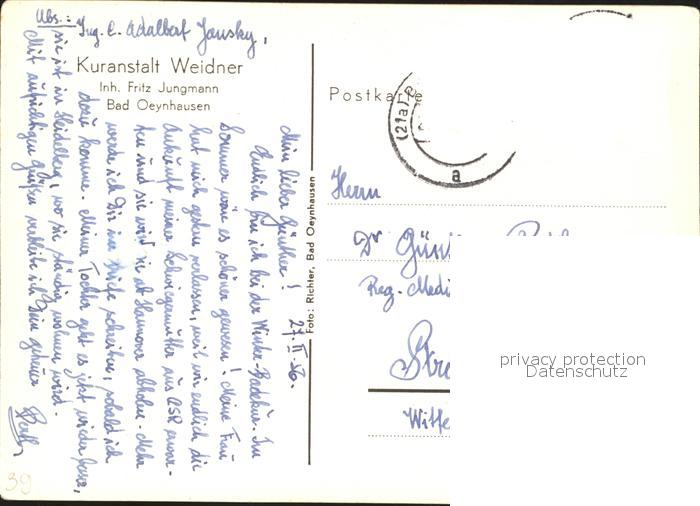 Abs.: Ing. C. Adalbert Jansky,
Kuranstalt Weidner
Inh. Fritz Jungmann
Bad Oeynhausen
27. II. 56.
Mein lieber Günther!
Endlich bin ich bei der Winter-Badekur. Im
Sommer wäre es schöner gewesen! Meine Frau
hat mich gestern verlassen, weil wir endlich die
Ankunft meiner Schwiegermutter aus ČSR erwar-
ten und sie wird sie ab Hannover abholen. Mehr
werde ich Dir schreiben, sobald ich
dazu komme. Meiner Tochter geht es jetzt wieder besser,
sie ist in Heidelberg, wo sie ständig wohnen wird.
Mit aufrichtigen Grüßen verbleibe ich Dein getreuer
Foto: Richter, Bad Oeynhausen
Postkarte
(21a)
a
Herrn
Dr Günt
Reg. Medi
Stra
Witte
privacy protection
Datenschutz
39